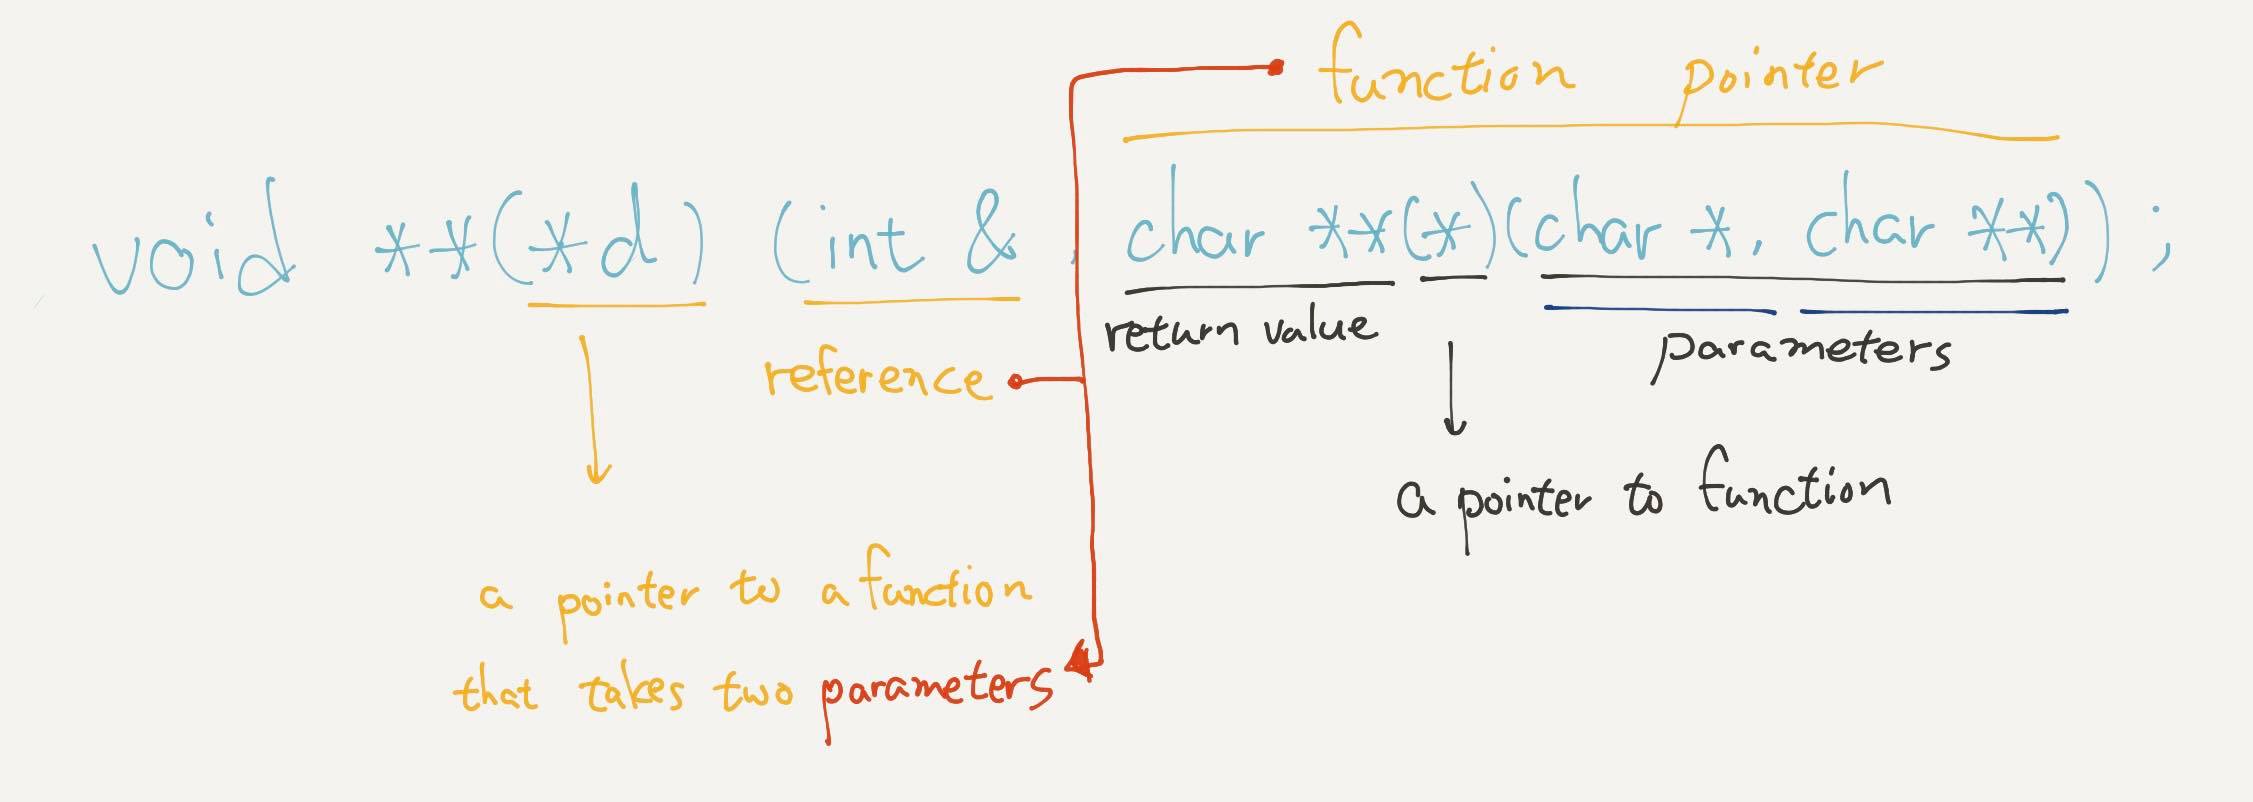 function pointer
void **(*d) (int &, char **(*)(char *, char **));
return value
parameters
reference
a pointer to function
a pointer to a function
that takes two parameters